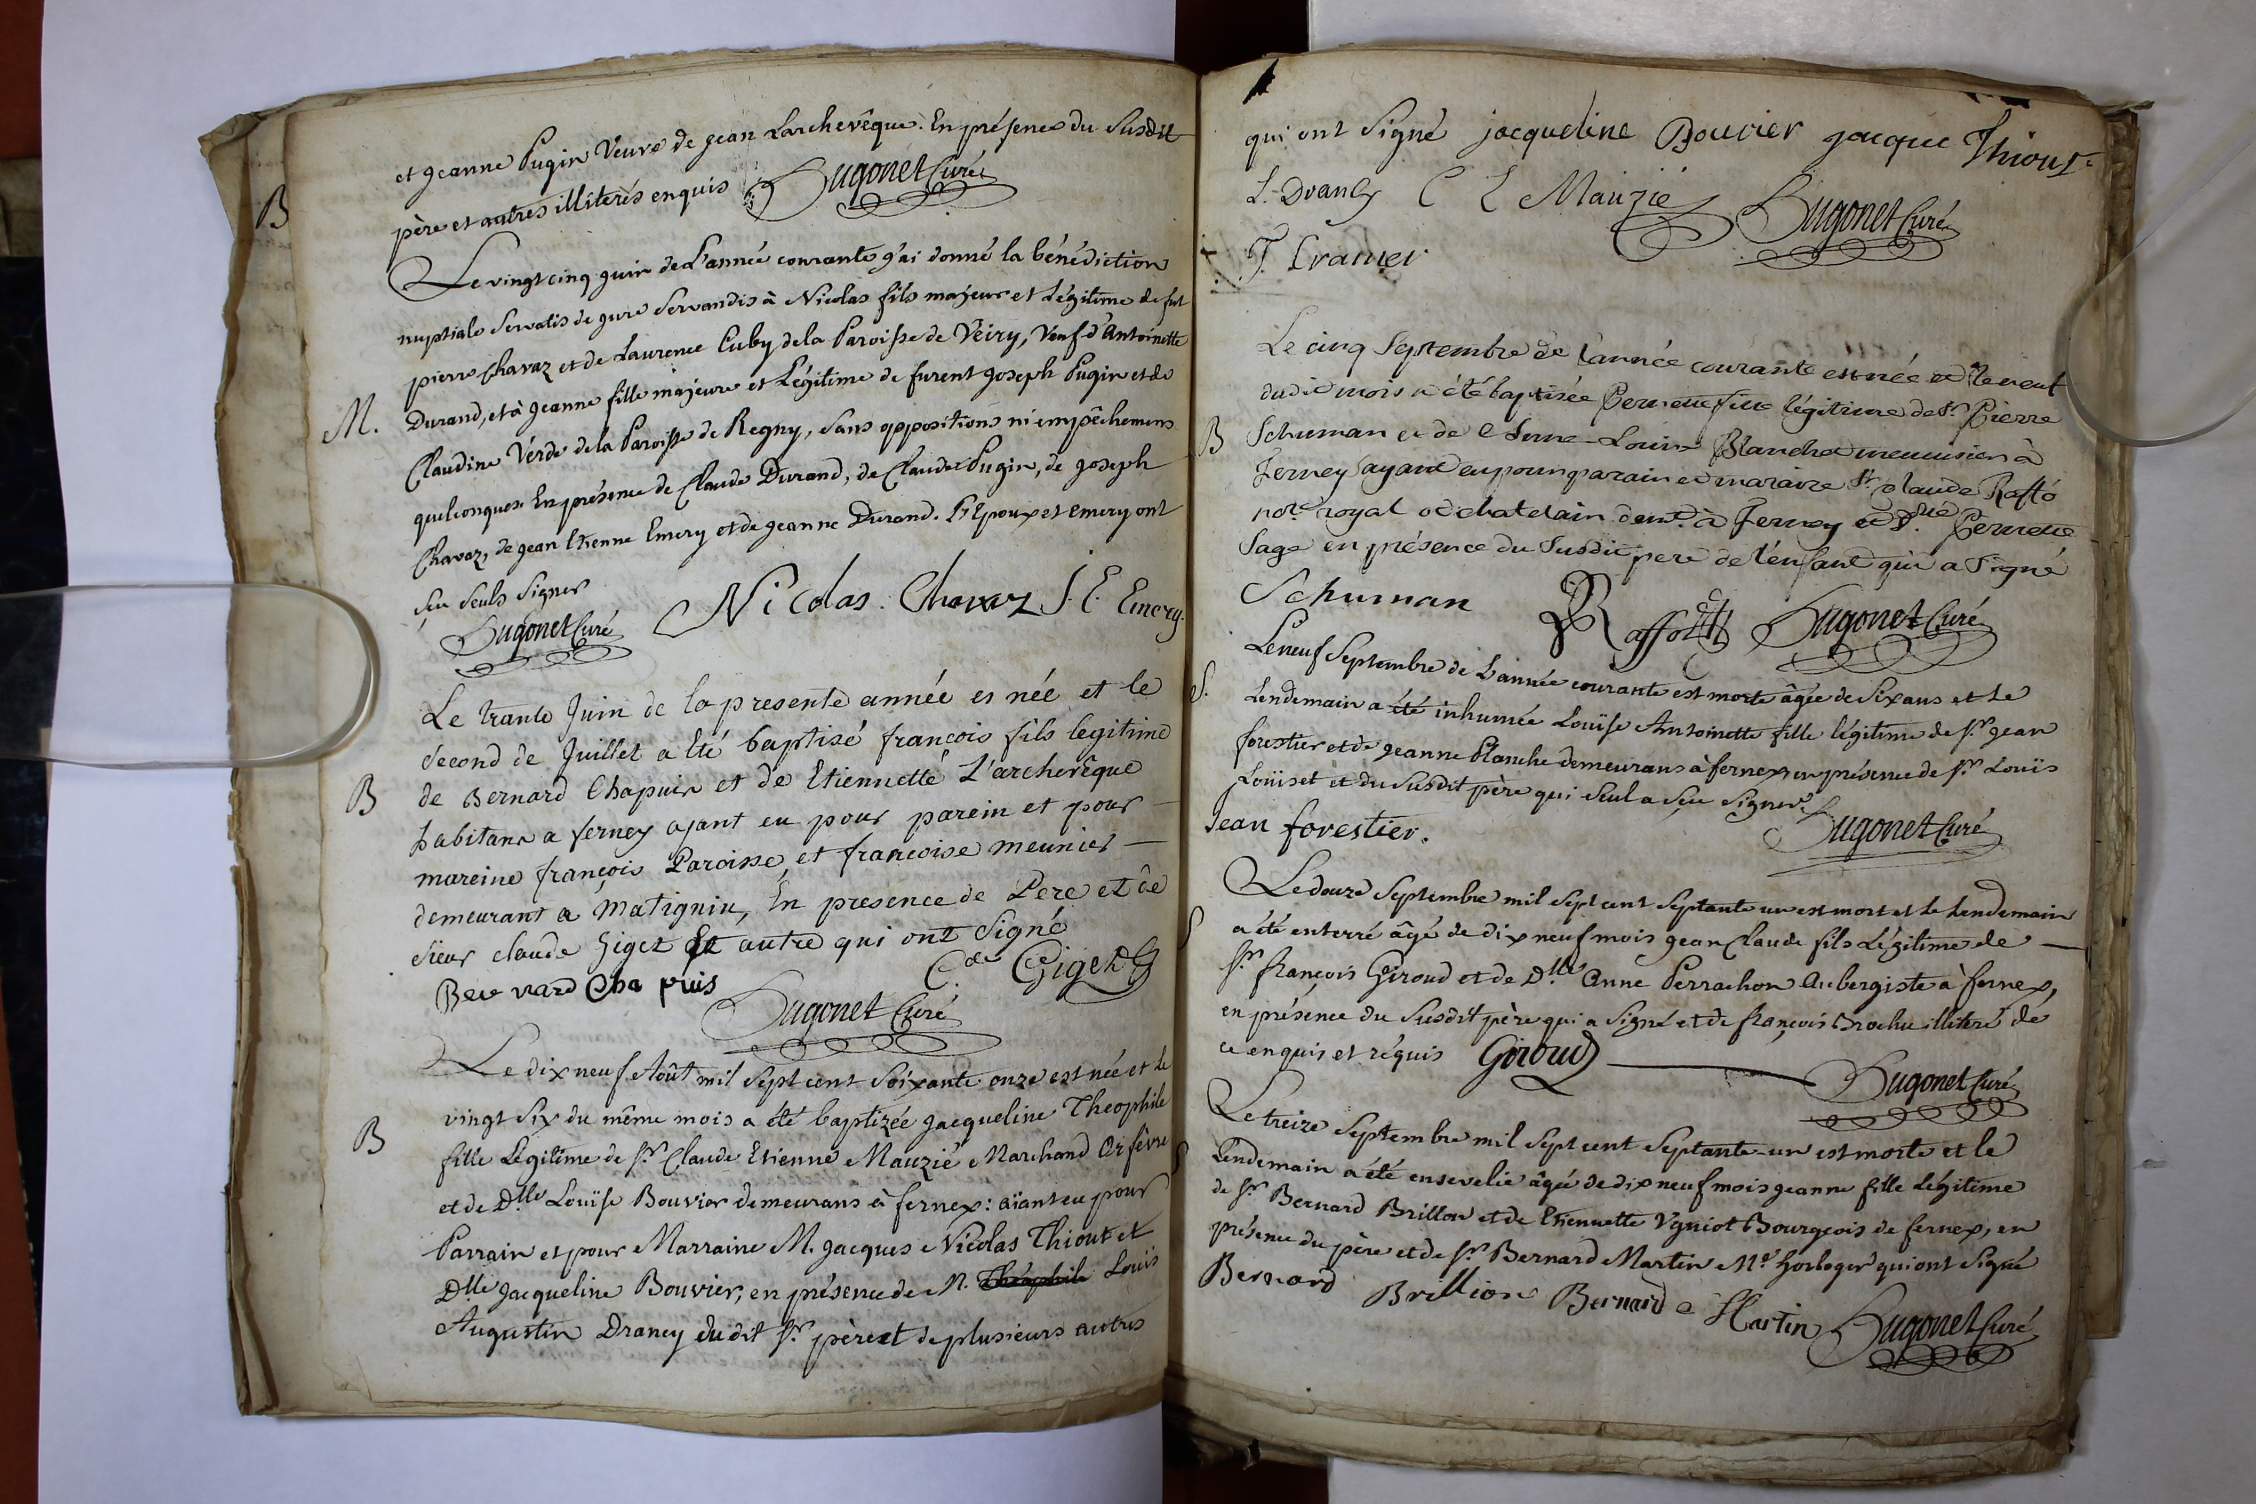 et Jeanne Pugin Veuve de Jean Larchevêque. En présence du Susdit
père et autres illiterés enquis Hugonet Curé
B
Le vingt cinq Juin de L'année courante j'ai donné la bénédiction
nuptiale Servatis de jure Servandis à Nicolas fils majeur et Légitime de fut
pierre Chavaz et de Laurence Cuby de la Paroisse de Veiry, Veuf d'Antoinette
M.
Durand, et à Jeanne fille majeure et Légitime de furent Joseph Pugin et de
Claudine Verde de la Paroisse de Regny, Sans oppositions ni empêchemens
quelconques. En présence de Claude Durand, de Claude Pugin, de Joseph
Chavaz, de Jean Etienne Emery et de Jeanne Durand. L'Epoux et Emery ont
Sçu Seuls Signer
Nicolas. Chavaz J. E. Emery.
Hugonet Curé
Le trante Juin de la presente année es née et le
second de Juillet a été baptisé françois fils legitime
B
de Bernard Chapuis et de Etiennette L'archevêque
habitans a ferney ajant eu pour parein et pour
mareine françois Paroisse, et françoise meunier
demeurant a Matignin, En presence de Pere et de
sieur claude Giget Et autre qui ont Signé
Bernard Chapuis
Cde Giget
Hugonet Curé
Le dix neuf Août mil Sept cent Soixante onze est née et le
vingt Six du même mois a été baptizée Jacqueline Theophile
B
fille Légitime de Sr. Claude Etienne Mauzié Marchand Orfèvre
et de Dlle Louïse Bouvier demeurans à fernex: aïant eu pour
Parrain et pour Marraine M. Jacques Nicolas Thiout et
Dlle Jacqueline Bouvier, en présence de M. Théophile Louis
Augustin Drancy du dit Sr. père et de plusieurs autres
qui ont Signé jacqueline Bouvier jacque Thiout
L. Drancy C E Mauzié Hugonet Curé
T. Cramer
Le cinq Septembre de l'année courante est née et le neuf
dudit mois a été baptisée Pernette fille légitime de Sr. Pierre
B
Schuman et de Anne-Louise Blanchet menuisier à
Ferney ayant eu pour parain et maraine Sr. claude Raffo
not.e royal et chatelain demt. à Ferney et Dlle Pernette
Sage en présence du Susdit pere de l'enfant qui a Signé
Schuman Raffo Hugonet Curé
Le neuf Septembre de L'année courante est morte âgée de Six ans et Le
S.
Lendemain a été inhumée Louïse Antoinette fille légitime de Sr. Jean
forestier et de Jeanne Planche demeurans à fernex en présence de Sr. Louïs
Louïset et du Susdit père qui Seul a Sçu Signer.
Jean forestier. Hugonet Curé
Le douze Septembre mil Sept cent Septante un est mort et le Lendemain
S
a été enterré âgé de dix neuf mois Jean Claude fils Légitime de
Sr. françois Giroud et de Dlle Anne Perrachon Aubergiste à fernex,
en présence du Susdit père qui a Signé et de françois Brochu illiteré de
ce enquis et réquis Giroud Hugonet Curé
Le treize Septembre mil Sept cent Septante-un est morte et le
S
Lendemain a été ensevelie âgée de dix neuf mois Jeanne fille Légitime
de Sr. Bernard Brillon et de Etiennette Vgniot Bourgeois de fernex, en
présence du père et de Sr. Bernard Martin Me horloger qui ont Signé
Bernard Brillion Bernard Martin Hugonet Curé